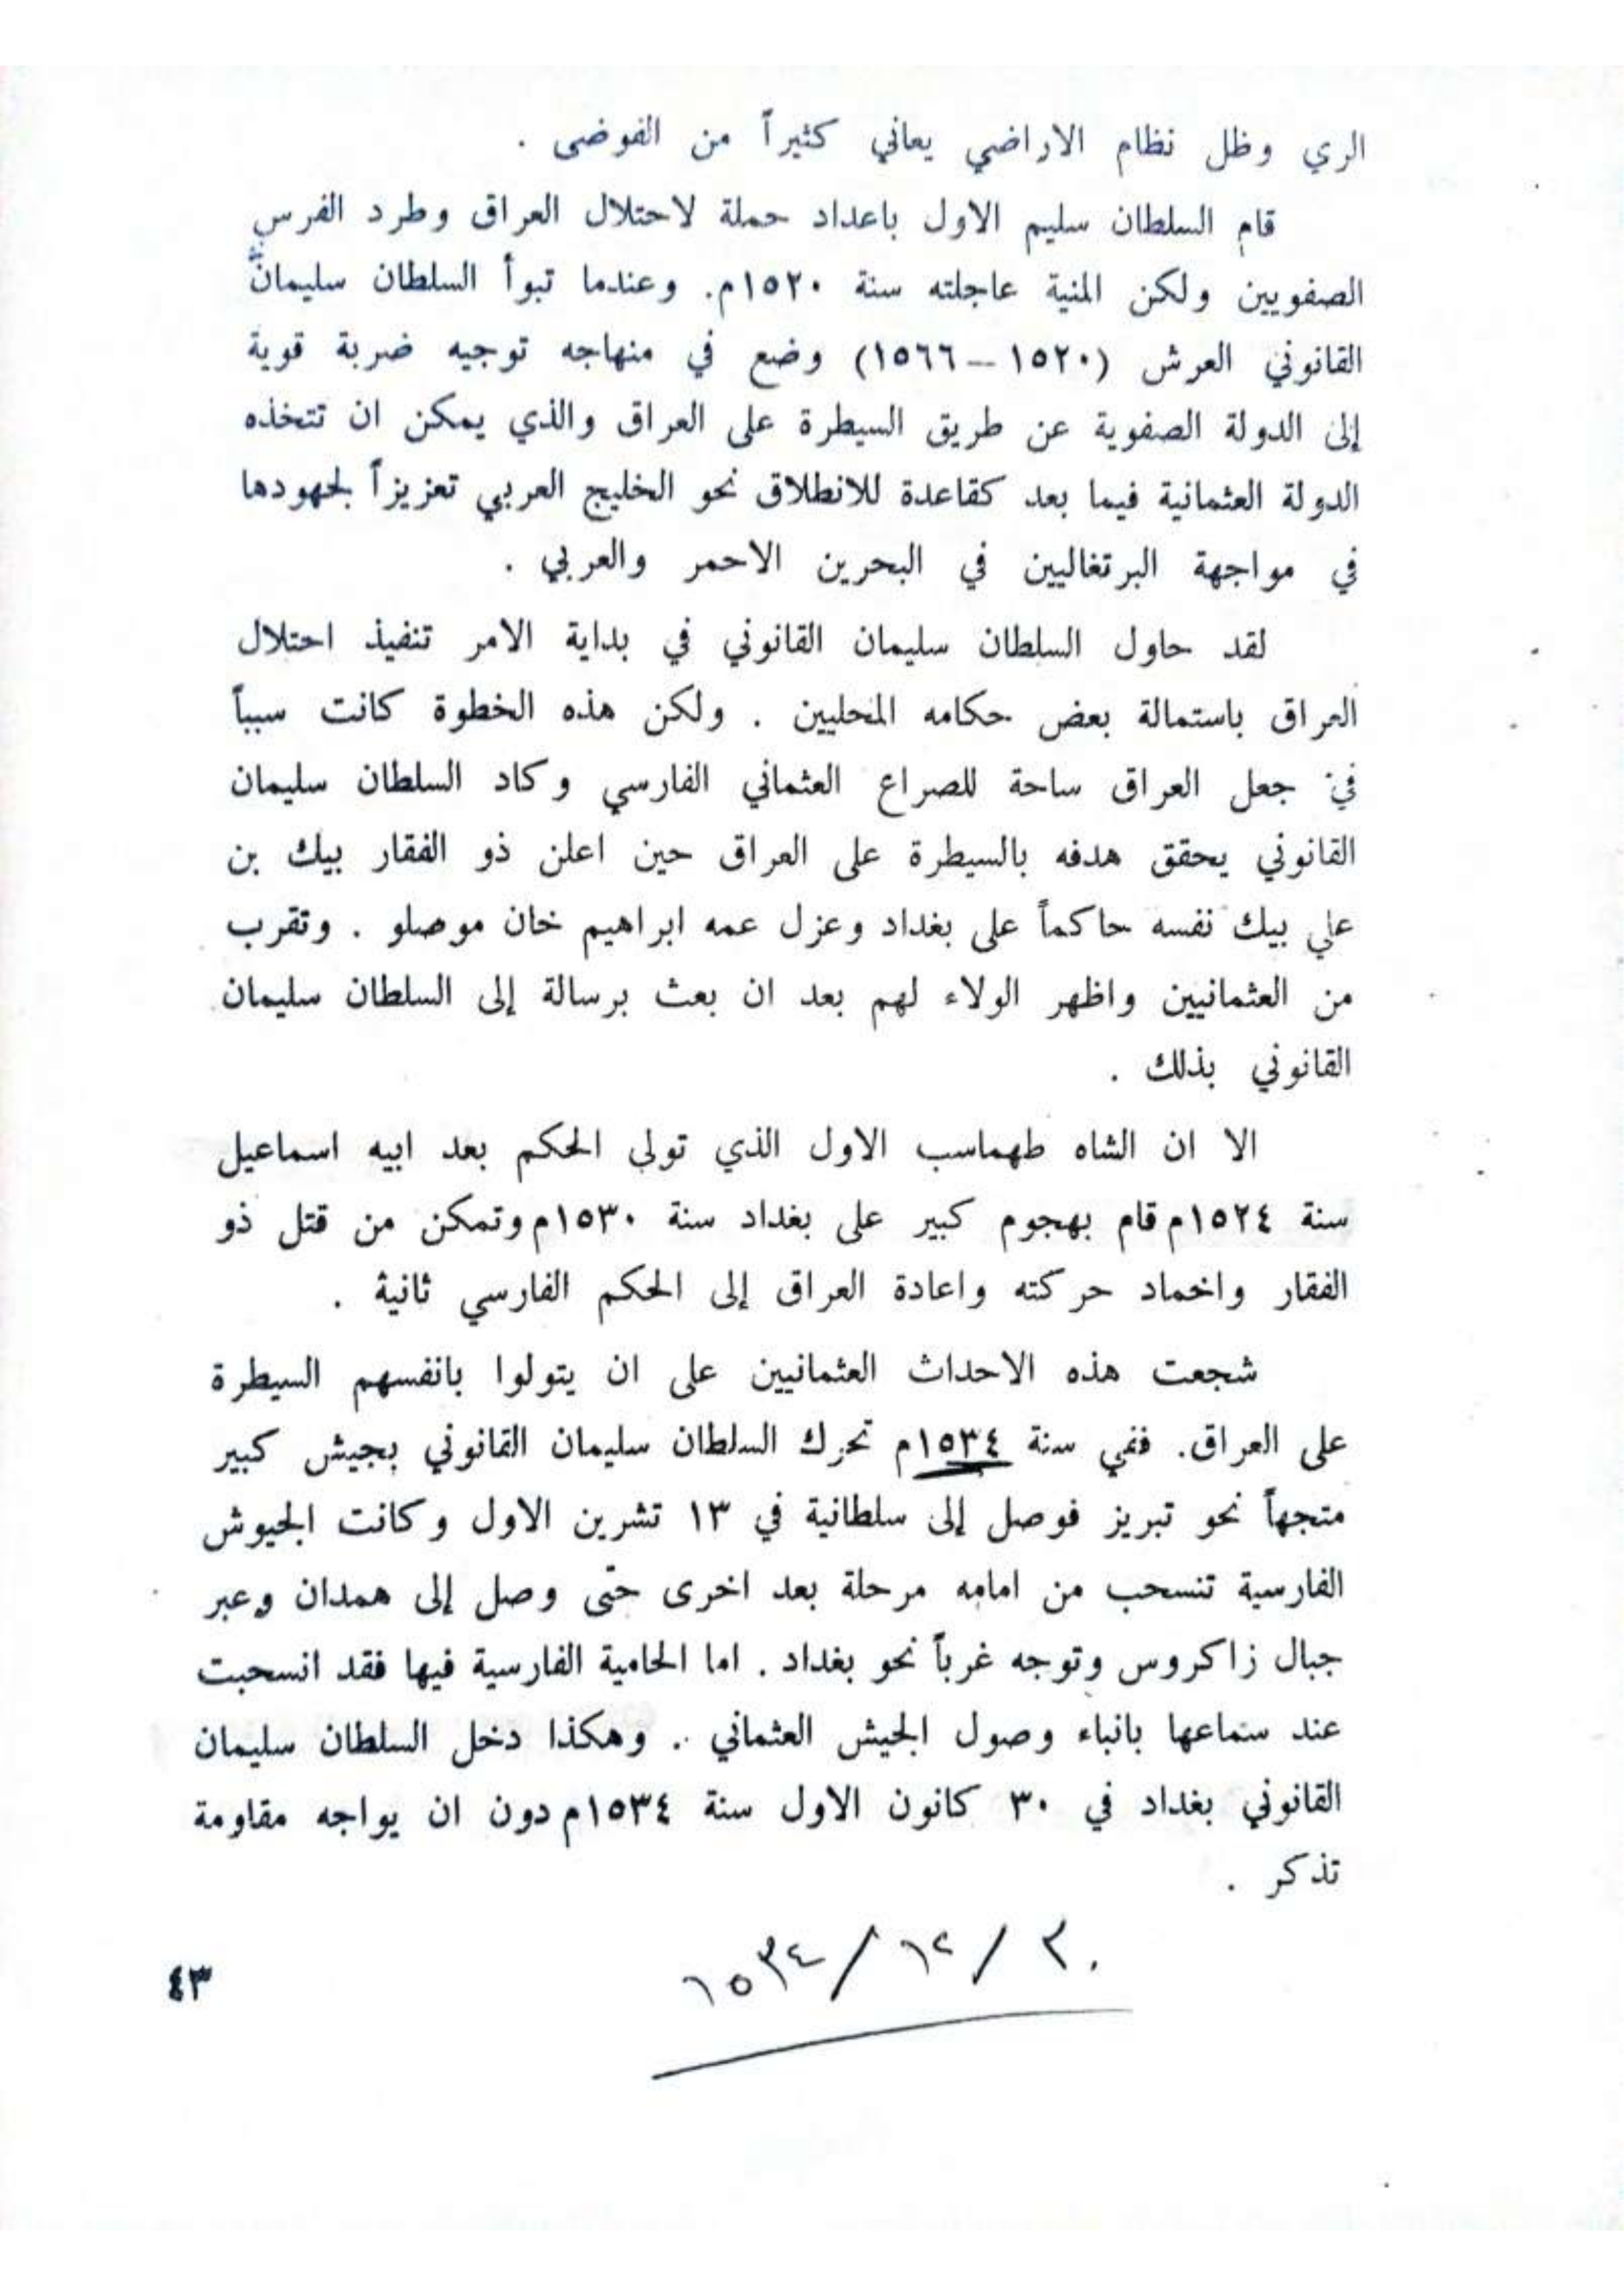 الري وظل نظام الاراضي يعاني كثيراً من الفوضى .
قام السلطان سليم الاول باعداد حملة لاحتلال العراق وطرد الفرس
الصفويين ولكن المنية عاجلته سنة ١٥٢٠م. وعندما تبوأ السلطان سليمان
القانوني العرش (١٥٢٠ – ١٥٦٦) وضع في منهاجه توجيه ضربة قوية
إلى الدولة الصفوية عن طريق السيطرة على العراق والذي يمكن ان تتخذه
الدولة العثمانية فيما بعد كقاعدة للانطلاق نحو الخليج العربي تعزيزاً لجهودها
في مواجهة البرتغاليين في البحرين الاحمر والعربي .
لقد حاول السلطان سليمان القانوني في بداية الامر تنفيذ احتلال
العراق باستمالة بعض حكامه المحليين . ولكن هذه الخطوة كانت سبباً
في جعل العراق ساحة للصراع العثماني الفارسي وكاد السلطان سليمان
القانوني يحقق هدفه بالسيطرة على العراق حين اعلن ذو الفقار بيك بن
علي بيك نفسه حاكماً على بغداد وعزل عمه ابراهيم خان موصلو . وتقرب
من العثمانيين واظهر الولاء لهم بعد ان بعث برسالة إلى السلطان سليمان
القانوني بذلك .
الا ان الشاه طهماسب الاول الذي تولى الحكم بعد ابيه اسماعيل
سنة ١٥٢٤م قام بهجوم كبير على بغداد سنة ١٥٣٠م وتمكن من قتل ذو
الفقار واخماد حركته واعادة العراق إلى الحكم الفارسي ثانية .
شجعت هذه الاحداث العثمانيين على ان يتولوا بانفسهم السيطرة
على العراق. ففي سنة ١٥٣٤م تحرك السلطان سليمان القانوني بجيش كبير
متجهاً نحو تبريز فوصل إلى سلطانية في ١٣ تشرين الاول وكانت الجيوش
الفارسية تنسحب من امامه مرحلة بعد اخرى حتى وصل إلى همدان وعبر
جبال زاكروس وتوجه غرباً نحو بغداد . اما الحامية الفارسية فيها فقد انسحبت
عند سماعها بانباء وصول الجيش العثماني .. وهكذا دخل السلطان سليمان
القانوني بغداد في ٣٠ كانون الاول سنة ١٥٣٤م دون ان يواجه مقاومة
تذكر .
٣٠ / ١٢ / ١٥٣٤
٤٣